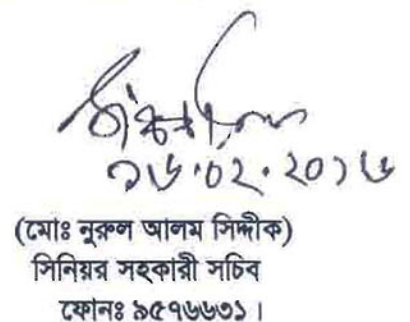 ১৬.০২.২০১৬
(মোঃ নুরুল আলম সিদ্দীক)
সিনিয়র সহকারী সচিব
ফোনঃ ৯৫৭৬৬৩১।